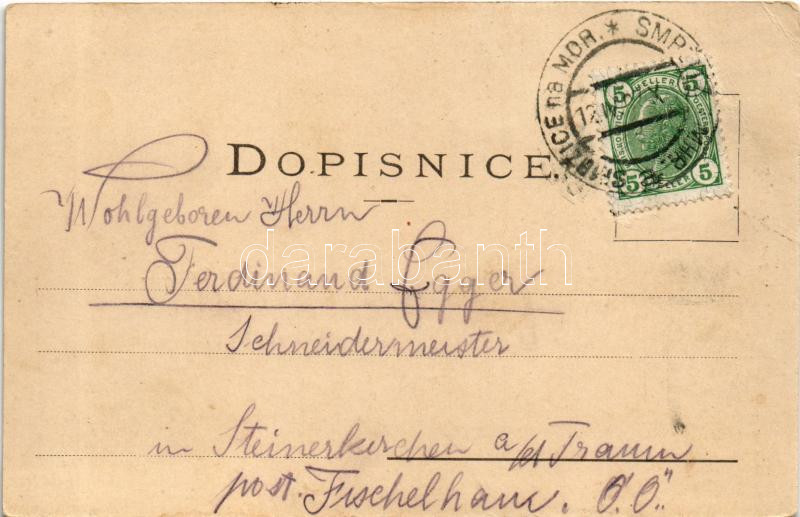 SMRŽICE na MOR. * SMR
5 HELLER 5
5 HELLER 5
DOPISNICE.
Wohlgeboren Herrn
darabanth
Ferdinand Egger
Schneidermeister
in Steinerkirchen a/d Traun
post. Fischelham. O.Ö."